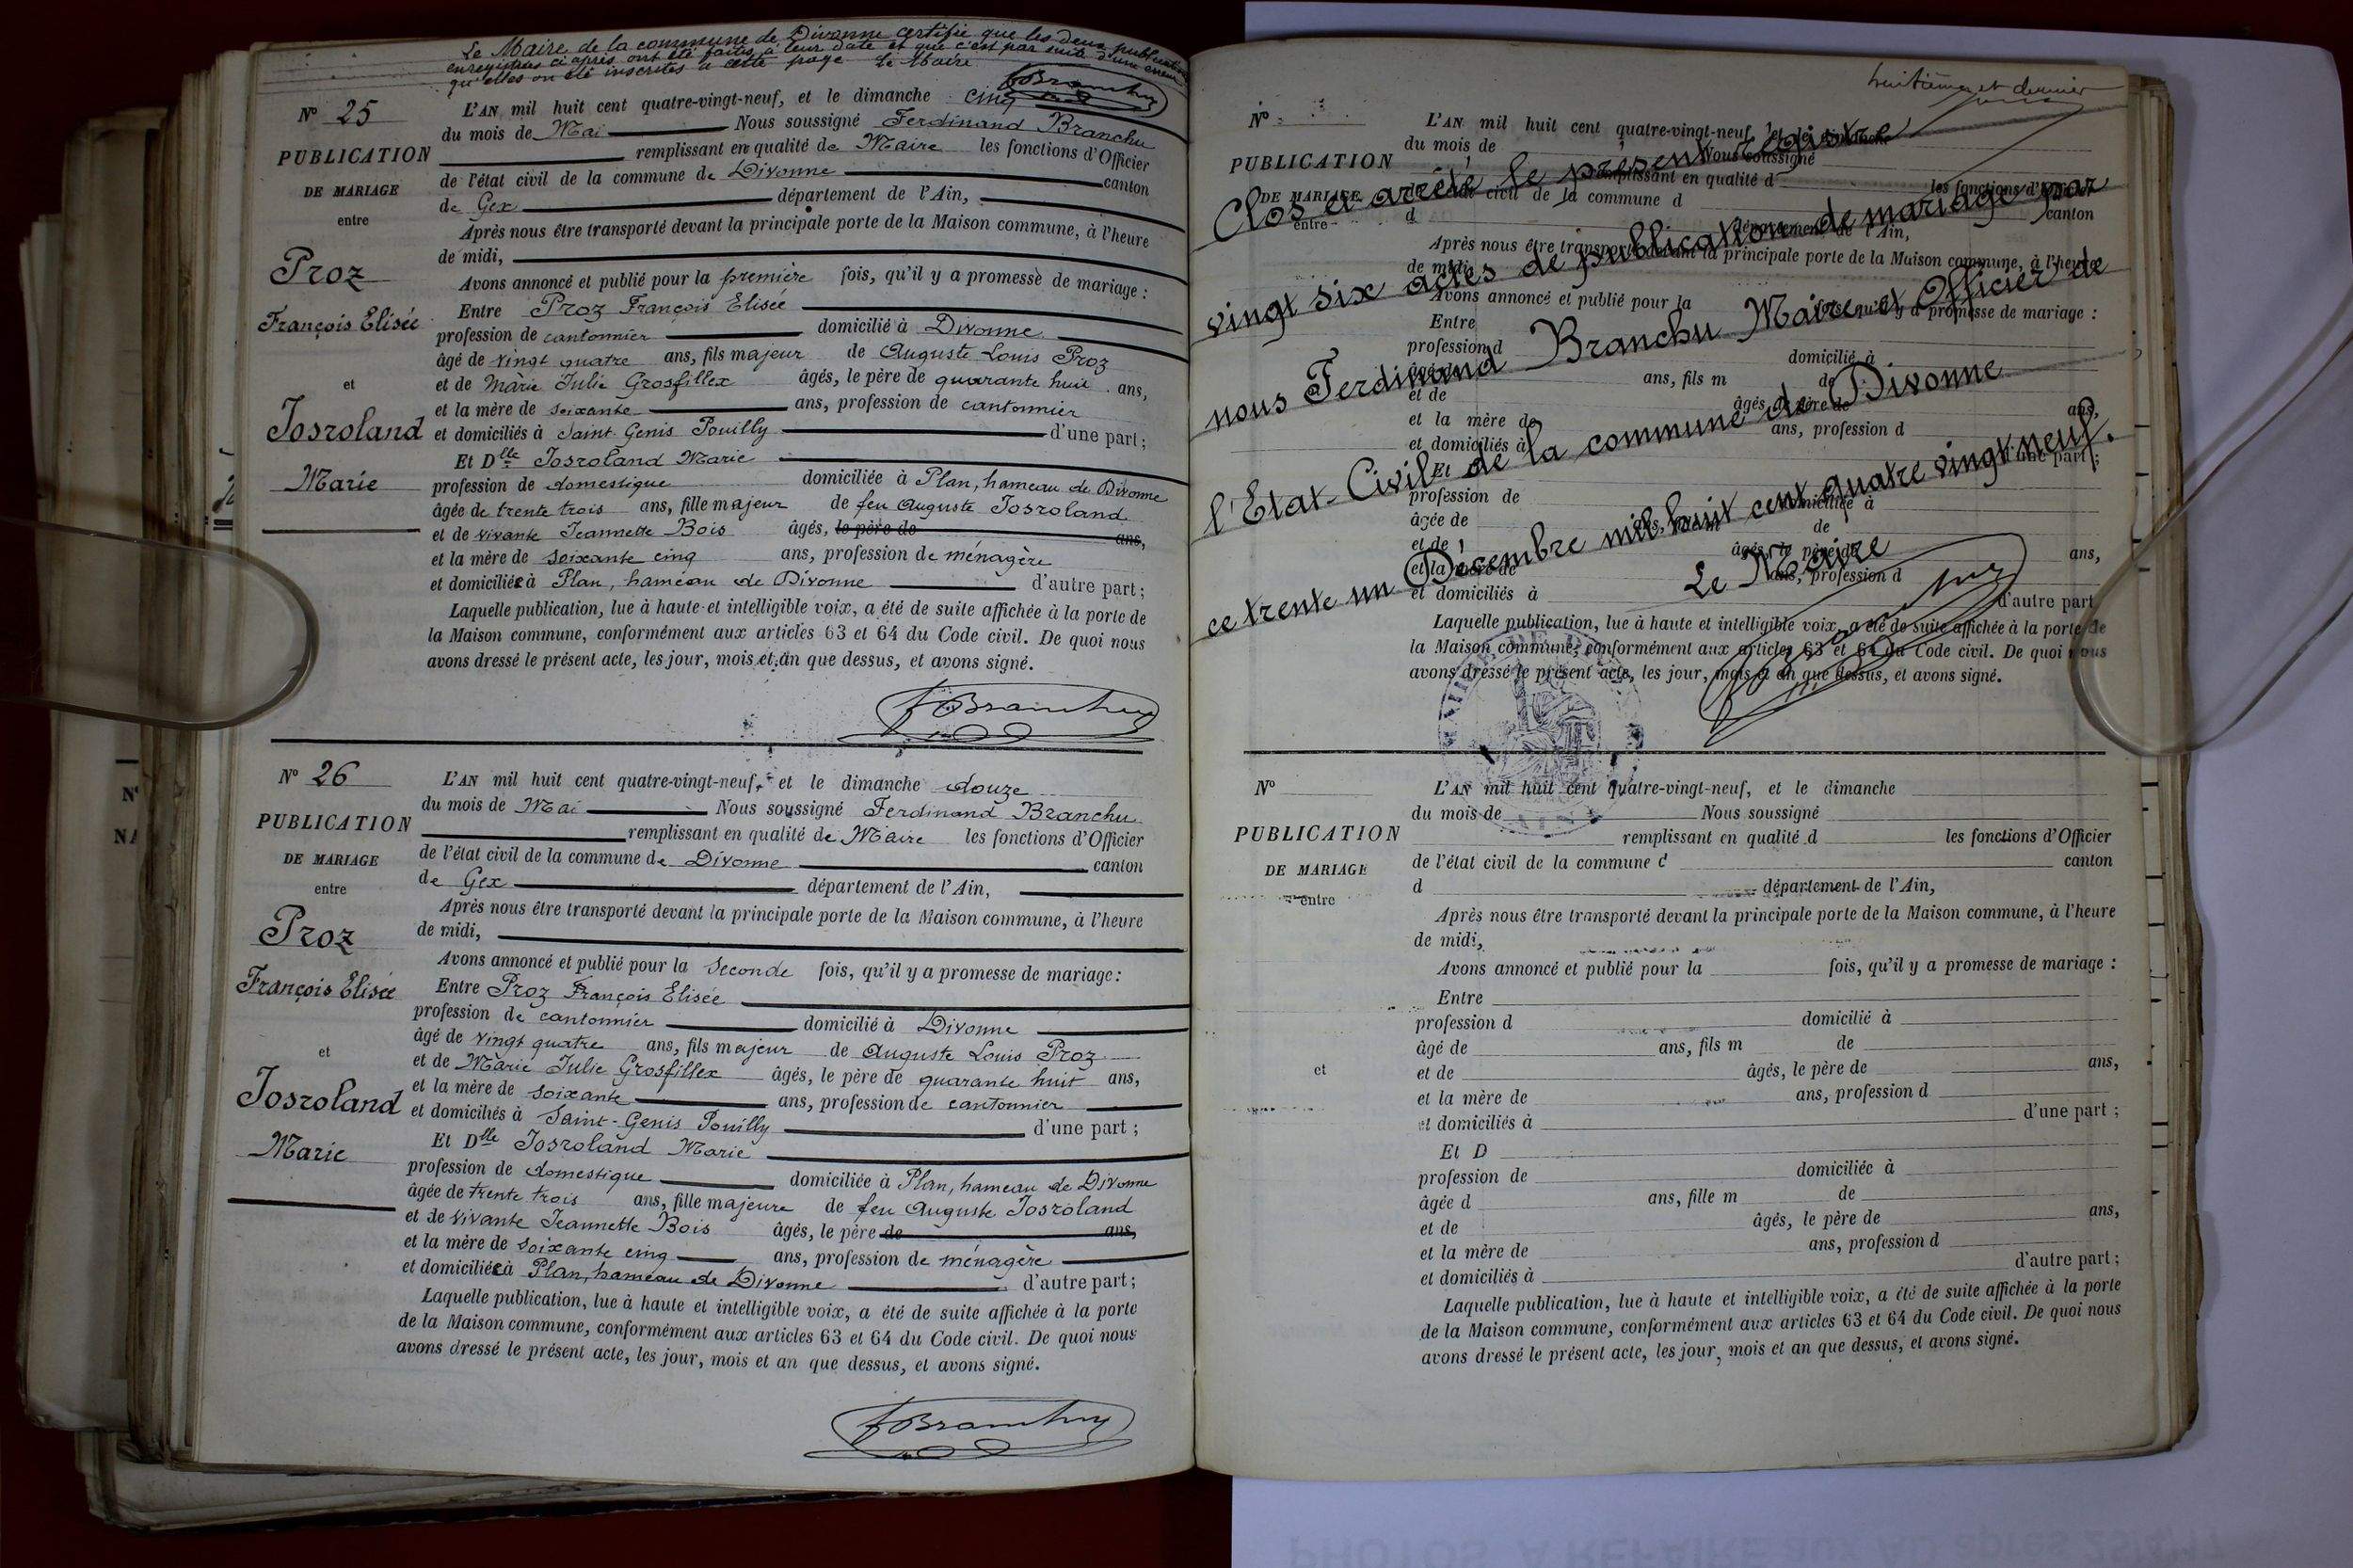 Le Maire de la commune de Divonne certifie que les deux publications
enregistrées ci après ont été faites à leur date et que c'est par suite d'une erreur
qu'elles on été inscrites à cette page Le Maire
FBranchu
N° 25
PUBLICATION
DE MARIAGE
entre
Proz
François Elisée
et
Josroland
Marie
L'AN mil huit cent quatre-vingt-neuf, et le dimanche cinq
du mois de Mai Nous soussigné Ferdinand Branchu
remplissant en qualité de Maire les fonctions d'Officier
de l'état civil de la commune de Divonne canton
de Gex département de l'Ain,
Après nous être transporté devant la principale porte de la Maison commune, à l'heure
de midi,
Avons annoncé et publié pour la première fois, qu'il y a promesse de mariage :
Entre Proz François Elisée
profession de cantonnier domicilié à Divonne
âgé de vingt quatre ans, fils majeur de Auguste Louis Proz
et de Marie Julie Grosfillex âgés, le père de quarante huit ans,
et la mère de soixante ans, profession de cantonnier
et domiciliés à Saint-Genis Pouilly d'une part ;
Et Dlle Josroland Marie
profession de domestique domiciliée à Plan, hameau de Divonne
âgée de trente trois ans, fille majeur de feu Auguste Josroland
et de vivante Jeannette Bois âgés, le père de ans,
et la mère de soixante cinq ans, profession de ménagère
et domiciliée à Plan, hameau de Divonne d'autre part ;
Laquelle publication, lue à haute et intelligible voix, a été de suite affichée à la porte de
la Maison commune, conformément aux articles 63 et 64 du Code civil. De quoi nous
avons dressé le présent acte, les jour, mois et an que dessus, et avons signé.
FBranchu
N° 26
PUBLICATION
DE MARIAGE
entre
Proz
François Elisée
et
Josroland
Marie
L'AN mil huit cent quatre-vingt-neuf, et le dimanche douze
du mois de Mai Nous soussigné Ferdinand Branchu
remplissant en qualité de Maire les fonctions d'Officier
de l'état civil de la commune de Divonne canton
de Gex département de l'Ain,
Après nous être transporté devant la principale porte de la Maison commune, à l'heure
de midi,
Avons annoncé et publié pour la Seconde fois, qu'il y a promesse de mariage :
Entre Proz François Elisée
profession de cantonnier domicilié à Divonne
âgé de vingt quatre ans, fils majeur de Auguste Louis Proz
et de Marie Julie Grosfillex âgés, le père de quarante huit ans,
et la mère de soixante ans, profession de cantonnier
et domiciliés à Saint-Genis Pouilly d'une part ;
Et Dlle Josroland Marie
profession de domestique domiciliée à Plan, hameau de Divonne
âgée de trente trois ans, fille majeure de feu Auguste Josroland
et de vivante Jeannette Bois âgés, le père de ans,
et la mère de soixante cinq ans, profession de ménagère
et domiciliée à Plan, hameau de Divonne d'autre part ;
Laquelle publication, lue à haute et intelligible voix, a été de suite affichée à la porte
de la Maison commune, conformément aux articles 63 et 64 du Code civil. De quoi nous
avons dressé le présent acte, les jour, mois et an que dessus, et avons signé.
FBranchu
huitième et dernier
Clos et arrêté le présent registre
de publication de mariage par
vingt six actes
nous Ferdinand Branchu Maire et Officier de
l'Etat-Civil de la commune de Divonne
ce trente un Décembre mil huit cent quatre vingt neuf.
Le Maire
N°
PUBLICATION
DE MARIAGE
entre
L'AN mil huit cent quatre-vingt-neuf, et le dimanche
du mois de Nous soussigné
remplissant en qualité d les fonctions d'Officier
de l'état civil de la commune d canton
d département de l'Ain,
Après nous être transporté devant la principale porte de la Maison commune, à l'heure
de midi,
Avons annoncé et publié pour la fois, qu'il y a promesse de mariage :
Entre
profession d domicilié à
âgé de ans, fils m de
et de âgés, le père de ans,
et la mère de ans, profession d
et domiciliés à d'une part ;
Et
profession de domiciliée à
âgée de ans, fille m de
et de âgés, le père de ans,
et la mère de ans, profession d
et domiciliés à d'autre part
Laquelle publication, lue à haute et intelligible voix, a été de suite affichée à la porte de
la Maison commune, conformément aux articles 63 et 64 du Code civil. De quoi nous
avons dressé le présent acte, les jour, mois et an que dessus, et avons signé.
N°
PUBLICATION
DE MARIAGE
entre
et
L'AN mil huit cent quatre-vingt-neuf, et le dimanche
du mois de Nous soussigné
remplissant en qualité d les fonctions d'Officier
de l'état civil de la commune d canton
d département de l'Ain,
Après nous être transporté devant la principale porte de la Maison commune, à l'heure
de midi,
Avons annoncé et publié pour la fois, qu'il y a promesse de mariage :
Entre
profession d domicilié à
âgé de ans, fils m de
et de âgés, le père de ans,
et la mère de ans, profession d
et domiciliés à d'une part ;
Et D
profession de domiciliée à
âgée d ans, fille m de
et de âgés, le père de ans,
et la mère de ans, profession d
et domiciliés à d'autre part ;
Laquelle publication, lue à haute et intelligible voix, a été de suite affichée à la porte
de la Maison commune, conformément aux articles 63 et 64 du Code civil. De quoi nous
avons dressé le présent acte, les jour, mois et an que dessus, et avons signé.